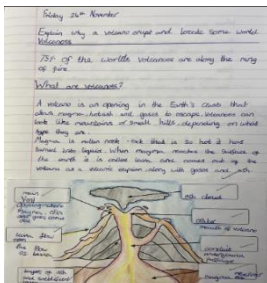 Friday 24th November
Explain why a volcano erupt and locate some world
Volcanoes
75% of the worlds volcanoes are along the ring
of fire.
What are volcanoes?
A volcano is an opening in the Earth's crust that
allows magma, hot ash and gases to escape. Volcanoes can
look like mountains or small hills, depending on what
type they are.
Magma is molten rock - rock that is so hot it has
turned into liquid. When magma reaches the surface of
the earth it is called lava and comes out of the
volcano as a volcanic explosion, along with gases and ash.
main
Vent
ash cloud
crater
mouth of volcano
lava flow
conduit
underground
magma
layers of ash